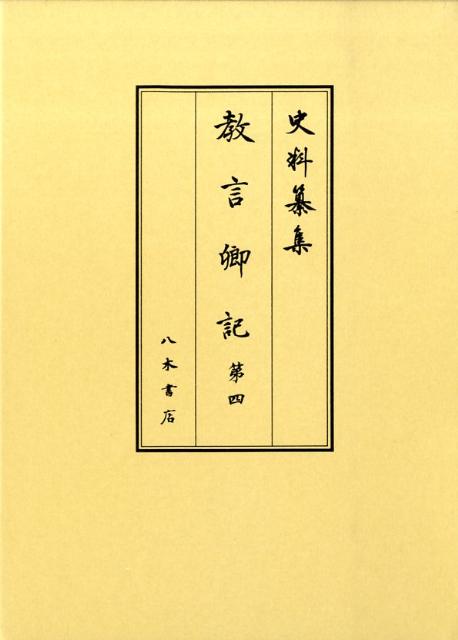 史料纂集
教言卿記 第四
八木書店